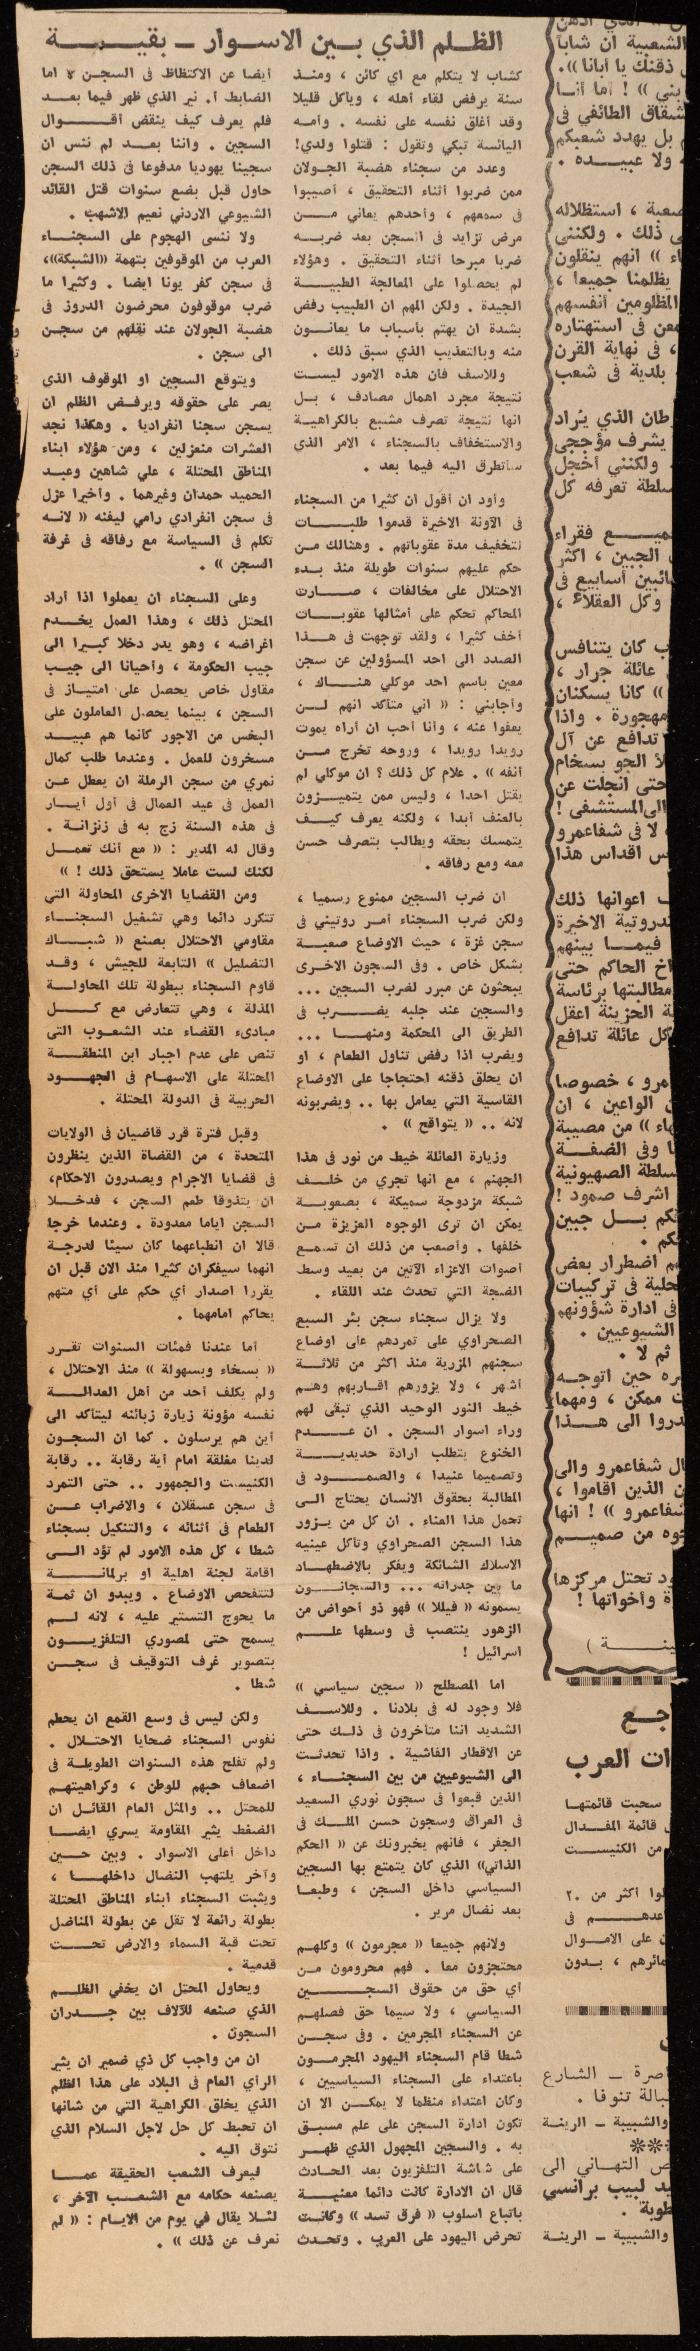 الظـلم الذي بـين الاسـوار ــ بقيـــة
كشاب لا يتكلم مع اي كائن ، ومنـذ
سنة يرفض لقاء أهله ، ويأكل قليلا
وقد أغلق نفسه على نفسه . وأمـه
اليائسة تبكي وتقول : قتلوا ولدي!
وعدد من سجناء هضبة الجـولان
ممن ضربوا أثناء التحقيق ، أصيبوا
فى سمعهم ، وأحدهم يعاني مـــن
مرض تزايد فى السجن بعد ضربـه
ضربا مبرحا أثناء التحقيق . وهؤلاء
لم يحصلوا على المعالجة الطبيـــة
الجيدة . ولكن المهم ان الطبيب رفض
بشدة ان يهتم بأسباب ما يعانـــون
منه وبالتعذيب الذي سبق ذلك .
وللاسف فان هذه الامور ليســت
نتيجة مجرد اهمال مصادف ، بــل
انها نتيجة تصرف مشبع بالكراهيـة
والاستخفاف بالسجناء ، الامر الذي
سأتطرق اليه فيما بعد .
وأود ان أقول ان كثيرا من السجناء
فى الآونة الاخيرة قدموا طلبـــات
لتخفيف مدة عقوباتهم . وهنالك مـن
حكم عليهم سنوات طويلة منذ بـدء
الاحتلال على مخالفات ، صــارت
المحاكم تحكم على أمثالها عقوبـات
أخف كثيرا ، ولقد توجهت فى هـذا
الصدد الى احد المسؤولين عن سجن
معين باسم احد موكلي هنـــاك ،
وأجابني : « اني متأكد انهم لـــن
يعفوا عنه ، وأنا أحب ان أراه يموت
رويدا رويدا ، وروحه تخرج مـــن
أنفه » . علام كل ذلك ؟ ان موكلي لم
يقتل احدا ، وليس ممن يتميـــزون
بالعنف أبدا ، ولكنه يعرف كيــف
يتمسك بحقه ويطالب بتصرف حسن
معه ومع رفاقه .
ان ضرب السجين ممنوع رسميا ،
ولكن ضرب السجناء أمـر روتيني فى
سجن غزة ، حيث الاوضاع صعبـة
بشكل خاص . وفى السجون الاخـرى
يبحثون عن مبرر لضرب السجين ...
والسجين عند جلبه يضـــرب فى
الطريق الى المحكمة ومنهـــا ...
ويضرب اذا رفض تناول الطعام ، او
ان يحلق ذقنه احتجاجا على الاوضاع
القاسية التي يعامل بها .. ويضربونه
لانه .. « يتواقح » .
وزيارة العائلة خيط من نور فى هذا
الجهنم ، مع انها تجري من خلــف
شبكة مزدوجة سميكة ، بصعوبــة
يمكن ان ترى الوجوه العزيزة مــن
خلفها . وأصعب من ذلك ان تسمـع
أصوات الاعزاء الآتين من بعيد وسط
الضجة التي تحدث عند اللقاء .
ولا يزال سجناء سجن بئر السبع
الصحراوي على تمردهم على اوضاع
سجنهم المزرية منذ اكثر من ثلاثـة
أشهر ، ولا يزورهم اقـاربهم وهـم
خيط النور الوحيد الذي تبقى لهم
وراء اسوار السجن . ان عـــدم
الخنوع يتطلب ارادة حديديـــة
وتصميما عنيدا ، والصمــود فى
المطالبة بحقوق الانسان يحتاج الـى
تحمل هذا العناء . ان كل من يــزور
هذا السجن الصحراوي وتأكل عينيه
الاسلاك الشائكة ويفكر بالاضطهـاد
ما بين جدرانه ... والسجانـــون
يسمونه « فيللا » فهو ذو أحواض من
الزهور ينتصب فى وسطها علـــم
اسرائيل !
اما المصطلح « سجين سياسي »
فلا وجود له فى بلادنا . وللاســف
الشديد اننا متأخرون فى ذلـك حتى
عن الاقطار الفاشية . واذا تحدثـت
الى الشيوعيين من بين السجنــاء ،
الذين قبعوا فى سجون نوري السعيد
فى العراق وسجون حسن الملــك فى
الجفر ، فانهم يخبرونك عن « الحكم
الذاتي» الذي كان يتمتع بها السجين
السياسي داخل السجن ، وطبعـا
بعد نضال مرير .
ولانهم جميعا « مجرمون » وكلهـم
محتجزون معا . فهم محرومون مـن
أي حق من حقوق السجــــين
السياسي ، ولا سيما حق فصلهـم
عن السجناء المجرمين . وفى سجـن
شطا قام السجناء اليهود المجرمـون
باعتداء على السجناء السياسيين ،
وكان اعتداء منظما لا يمكــن الا ان
تكون ادارة السجن على علم مسبـق
به . والسجين المجهول الذي ظهــر
على شاشة التلفزيون بعد الحادث
قال ان الادارة كانت دائما معنيـــة
باتباع اسلوب « فرق تسد » وكانـت
تحرض اليهود على العرب . وتحـدث
أيضا عن الاكتظاظ فى السجـن • اما
الضابط أ. نير الذي ظهر فيما بعـد
فلم يعرف كيف ينقض أقـــوال
السجين . واننا بعــد لم ننس ان
سجينا يهوديا مدفوعا فى ذلك السجن
حاول قبل بضع سنوات قتل القائد
الشيوعي الاردني نعيم الاشهب .
ولا ننسى الهجوم على السجنــاء
العرب من الموقوفين بتهمة «الشبكة»،
فى سجن كفر يونا ايضا . وكثيرا ما
ضرب موقوفون محرضون الدروز فى
هضبة الجولان عند نقلهم من سجـن
الى سجن .
ويتوقع السجين او الموقوف الذي
يصر على حقوقه ويرفـض الظلم ان
يسجن سجنا انفراديا . وهكذا نجد
العشرات منعزلين ، ومن هؤلاء ابناء
المناطق المحتلة ، علي شاهين وعبـد
الحميد حمدان وغيرهما . وأخيرا عزل
فى سجن انفرادي رامي ليفنه « لانـه
تكلم فى السياسة مع رفاقه فى غرفة
السجن » .
وعلى السجناء ان يعملوا اذا أراد
المحتل ذلك ، وهذا العمل يخــدم
اغراضه ، وهو يدر دخلا كبـيرا الى
جيب الحكومة ، وأحيانا الى جيـب
مقاول خاص يحصل على امتياز فى
السجن ، بينما يحصل العاملون على
البخس من الاجور كأنما هم عبيــد
مسخرون للعمل . وعندما طلب كمال
نمري من سجن الرملة ان يعطل عـن
العمل فى عيد العمال فى أول أيــار
فى هذه السنة زج به فى زنزانـة .
وقال له المدير : « مع أنك تعمــل
لكنك لست عاملا يستحق ذلك ! »
ومن القضايا الاخرى المحاولة التي
تتكرر دائما وهي تشغيل السجنــاء
مقاومي الاحتلال بصنع « شبــاك
التضليل » التابعة للجيش ، وقــد
قاوم السجناء ببطولة تلك المحاولـة
المذلة ، وهي تتعارض مع كـــل
مبادىء القضاء عند الشعوب التى
تنص على عدم اجبار ابن المنطقــة
المحتلة على الاسهام فى الجهــود
الحربية فى الدولة المحتلة .
وقبل فترة قرر قاضيان فى الولايات
المتحدة ، من القضاة الذين ينظرون
فى قضايا الاجرام ويصدرون الاحكام،
ان يتذوقا طعم السجن ، فدخـلا
السجن اياما معدودة . وعندما خرجا
قالا ان انطباعهما كان سيئا لدرجة
انهما سيفكران كثيرا منذ الان قبل ان
يقررا اصدار أي حكم على أي متهم
يحاكم امامهما .
أما عندنا فمئات السنوات تقـرر
« بسخاء وبسهولة » منذ الاحتلال ،
ولم يكلف أحد من أهل العدالـــة
نفسه مؤونة زيارة زبائنه ليتأكد الى
أين هم يرسلون . كما ان السجـون
لدينا مغلقة امام أية رقابة .. رقابة
الكنيست والجمهور .. حتى التمرد
فى سجن عسقلان ، والاضراب عـــن
الطعام فى أثنائه ، والتنكيل بسجناء
شطا ، كل هذه الامور لم تؤد الــى
اقامة لجنة اهلية او برلمانــــة
لتتفحص الاوضاع . ويبدو ان ثمـة
ما يحوج التستير عليه ، لانه لـــم
يسمح حتى لمصوري التلفزيــون
بتصوير غرف التوقيف فى سجــن
شطا .
ولكن ليس فى وسع القمع ان يحطم
نفوس السجناء ضحايا الاحتـلال .
ولم تفلح هذه السنوات الطويلـة فى
اضعاف حبهم للوطن ، وكراهيتهـم
للمحتل .. والمثل العام القائـل ان
الضغط يثير المقاومة يسري ايضـا
داخل أعلى الاسوار . وبين حـــين
وآخر يلتهب النضال داخلهـــا ،
ويثبت السجناء ابناء المناطق المحتلة
بطولة رائعة لا تقل عن بطولة المناضل
تحت قبة السماء والارض تحـــت
قدمية .
ويحاول المحتل ان يخفي الظلــم
الذي صنعه للآلاف بين جــدران
السجون .
ان من واجب كل ذي ضمير ان يثير
الرأي العام فى البلاد على هذا الظلم
الذي يخلق الكراهية التي من شانها
ان تحبط كل حل لاجل السلام الذي
نتوق اليه .
ليعرف الشعب الحقيقة عمــا
يصنعه حكامه مع الشعــب الآخر ،
لئـلا يقال في يوم من الايـام : « لم
نعرف عن ذلك » .
الشعبية ان شاباً
ذقنك يا أبانا » .
الشقاق الطائفي فى
بل يهدد شعبكم
ولا عبيــده .
، استظلاله
ذلك . ولكننى
» انهم ينقلون
يظلمنا جميعا ،
المظلومين أنفسهم
فى استهتاره
، فى نهاية القرن
بلدية فى شعب
الذي يُراد
يشرف مؤججي
ولكنني أخجل
تعرفه كل
فقراء
الجبين ، اكثر
أسابيع فى
وكل العقلاء ،
كان يتنافس
عائلة جرار ،
» كانا يسكنان
مهجورة . واذا
تدافع عن آل
الجو بسخام
حتى انجلت عن
الى المستشفى !
لا فى شفاعمرو
اقداس هذا
اعوانها ذلك
الاخرة
فيمـا بينهم
الحاكم حتى
مطالبتها برئاسة
الحزينة اعقل
كل عائلة تدافع
، خصوصا
الواعين ، ان
» من مصيبة
وفى الضفــة
السلطة الصهيونية
اشرف صمود !
بــل جبين
اضطرار بعض
فى تركيبات
فى ادارة شؤونهم
الشيوعيين .
ثم لا .
حين اتوجـه
ممكن ، ومهما
الى هـــذا
شفاعمرو والى
الذين اقاموا ،
شفاعمرو » ! انها
من صميـــم
تحتل مركزها
وأخواتها !
العرب
سحبت قائمتها
قائمة المفـدال
من الكنيســت
أكثر من ٢٠
فى
على الامــوال
، بـدون
ــ الشارع
تنوفا .
والشبيبة ــ الرينـة
***
التهـاني الى
لبيب برانسي
والشبيبة ــ الرينـة